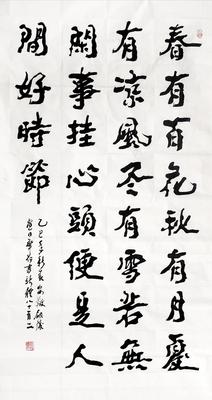 春有百花秋有月夏
有凉風冬有雪若無
閑事挂心頭便是人
間好時節
乙巳
八十有二